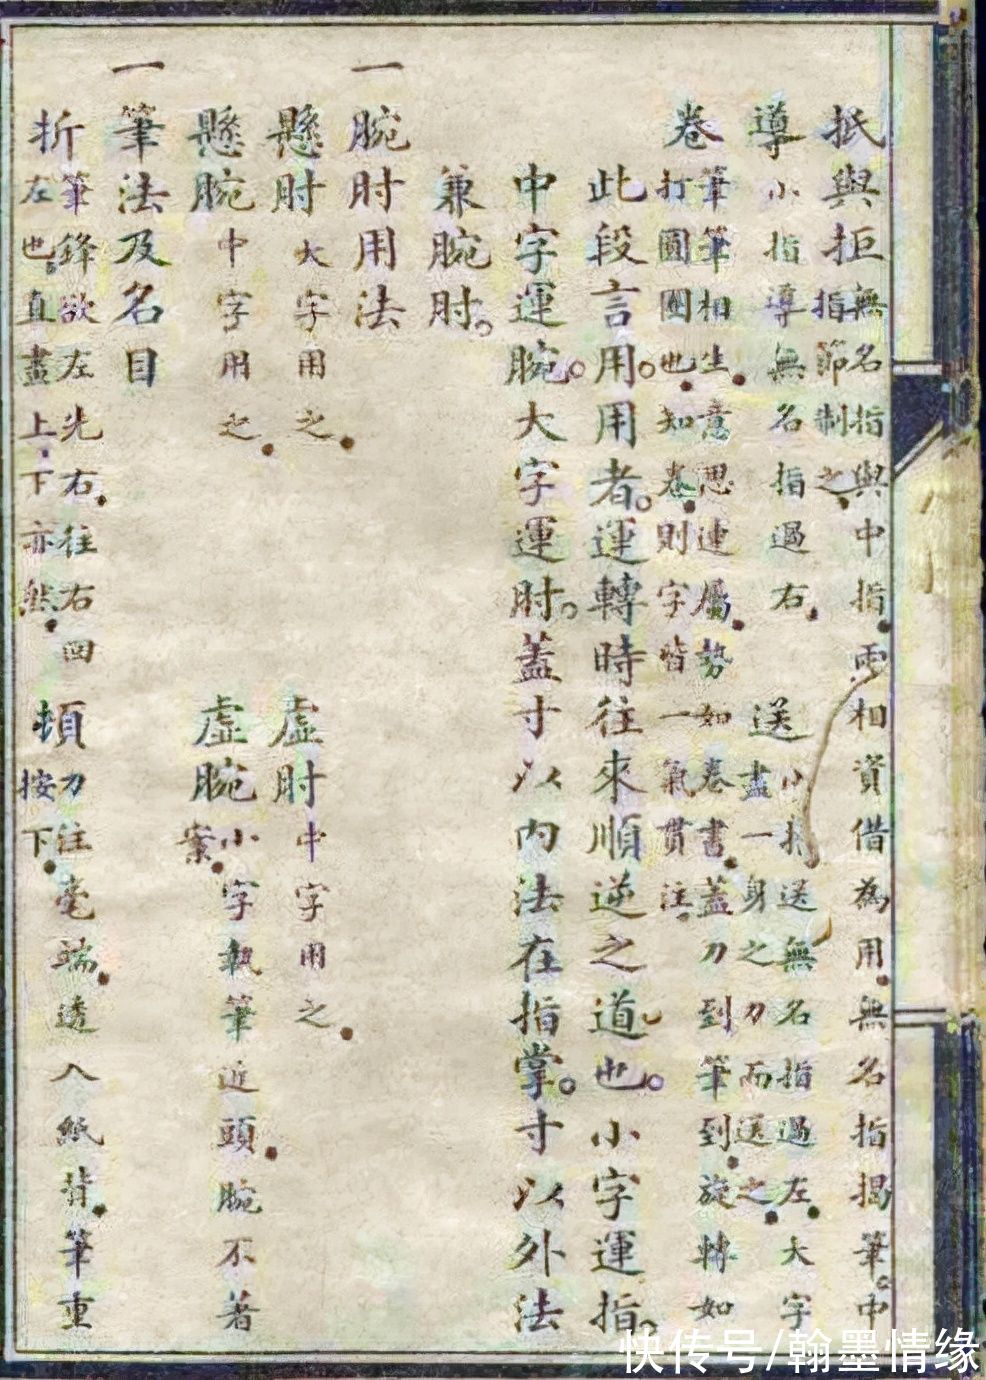 抵與拒無名指與中指。兩相資借為用。無名指揭筆。中
指節制之。
導小指導無名指過右。
送小指送無名指過左。大字
盡一身之力而送之。
卷筆筆相生。意思連屬。勢如卷書。蓋力到筆到。旋轉如
打圓圈也。知卷。則字皆一氣貫注。
此段言用。用者。運轉時往來順逆之道也。小字運指。
中字運腕。大字運肘。蓋寸以內法在指掌。寸以外法
兼腕肘。
一腕肘用法
懸肘大字用之。
虛肘中字用之。
懸腕中字用之。
虛腕小字執筆近頭。腕不著
案。
一筆法及名目
折筆鋒欲左先右。往右回
左也。直畫上。下亦然。
頓力注毫端。透入紙背。筆重
按下。
快传号/翰墨情缘